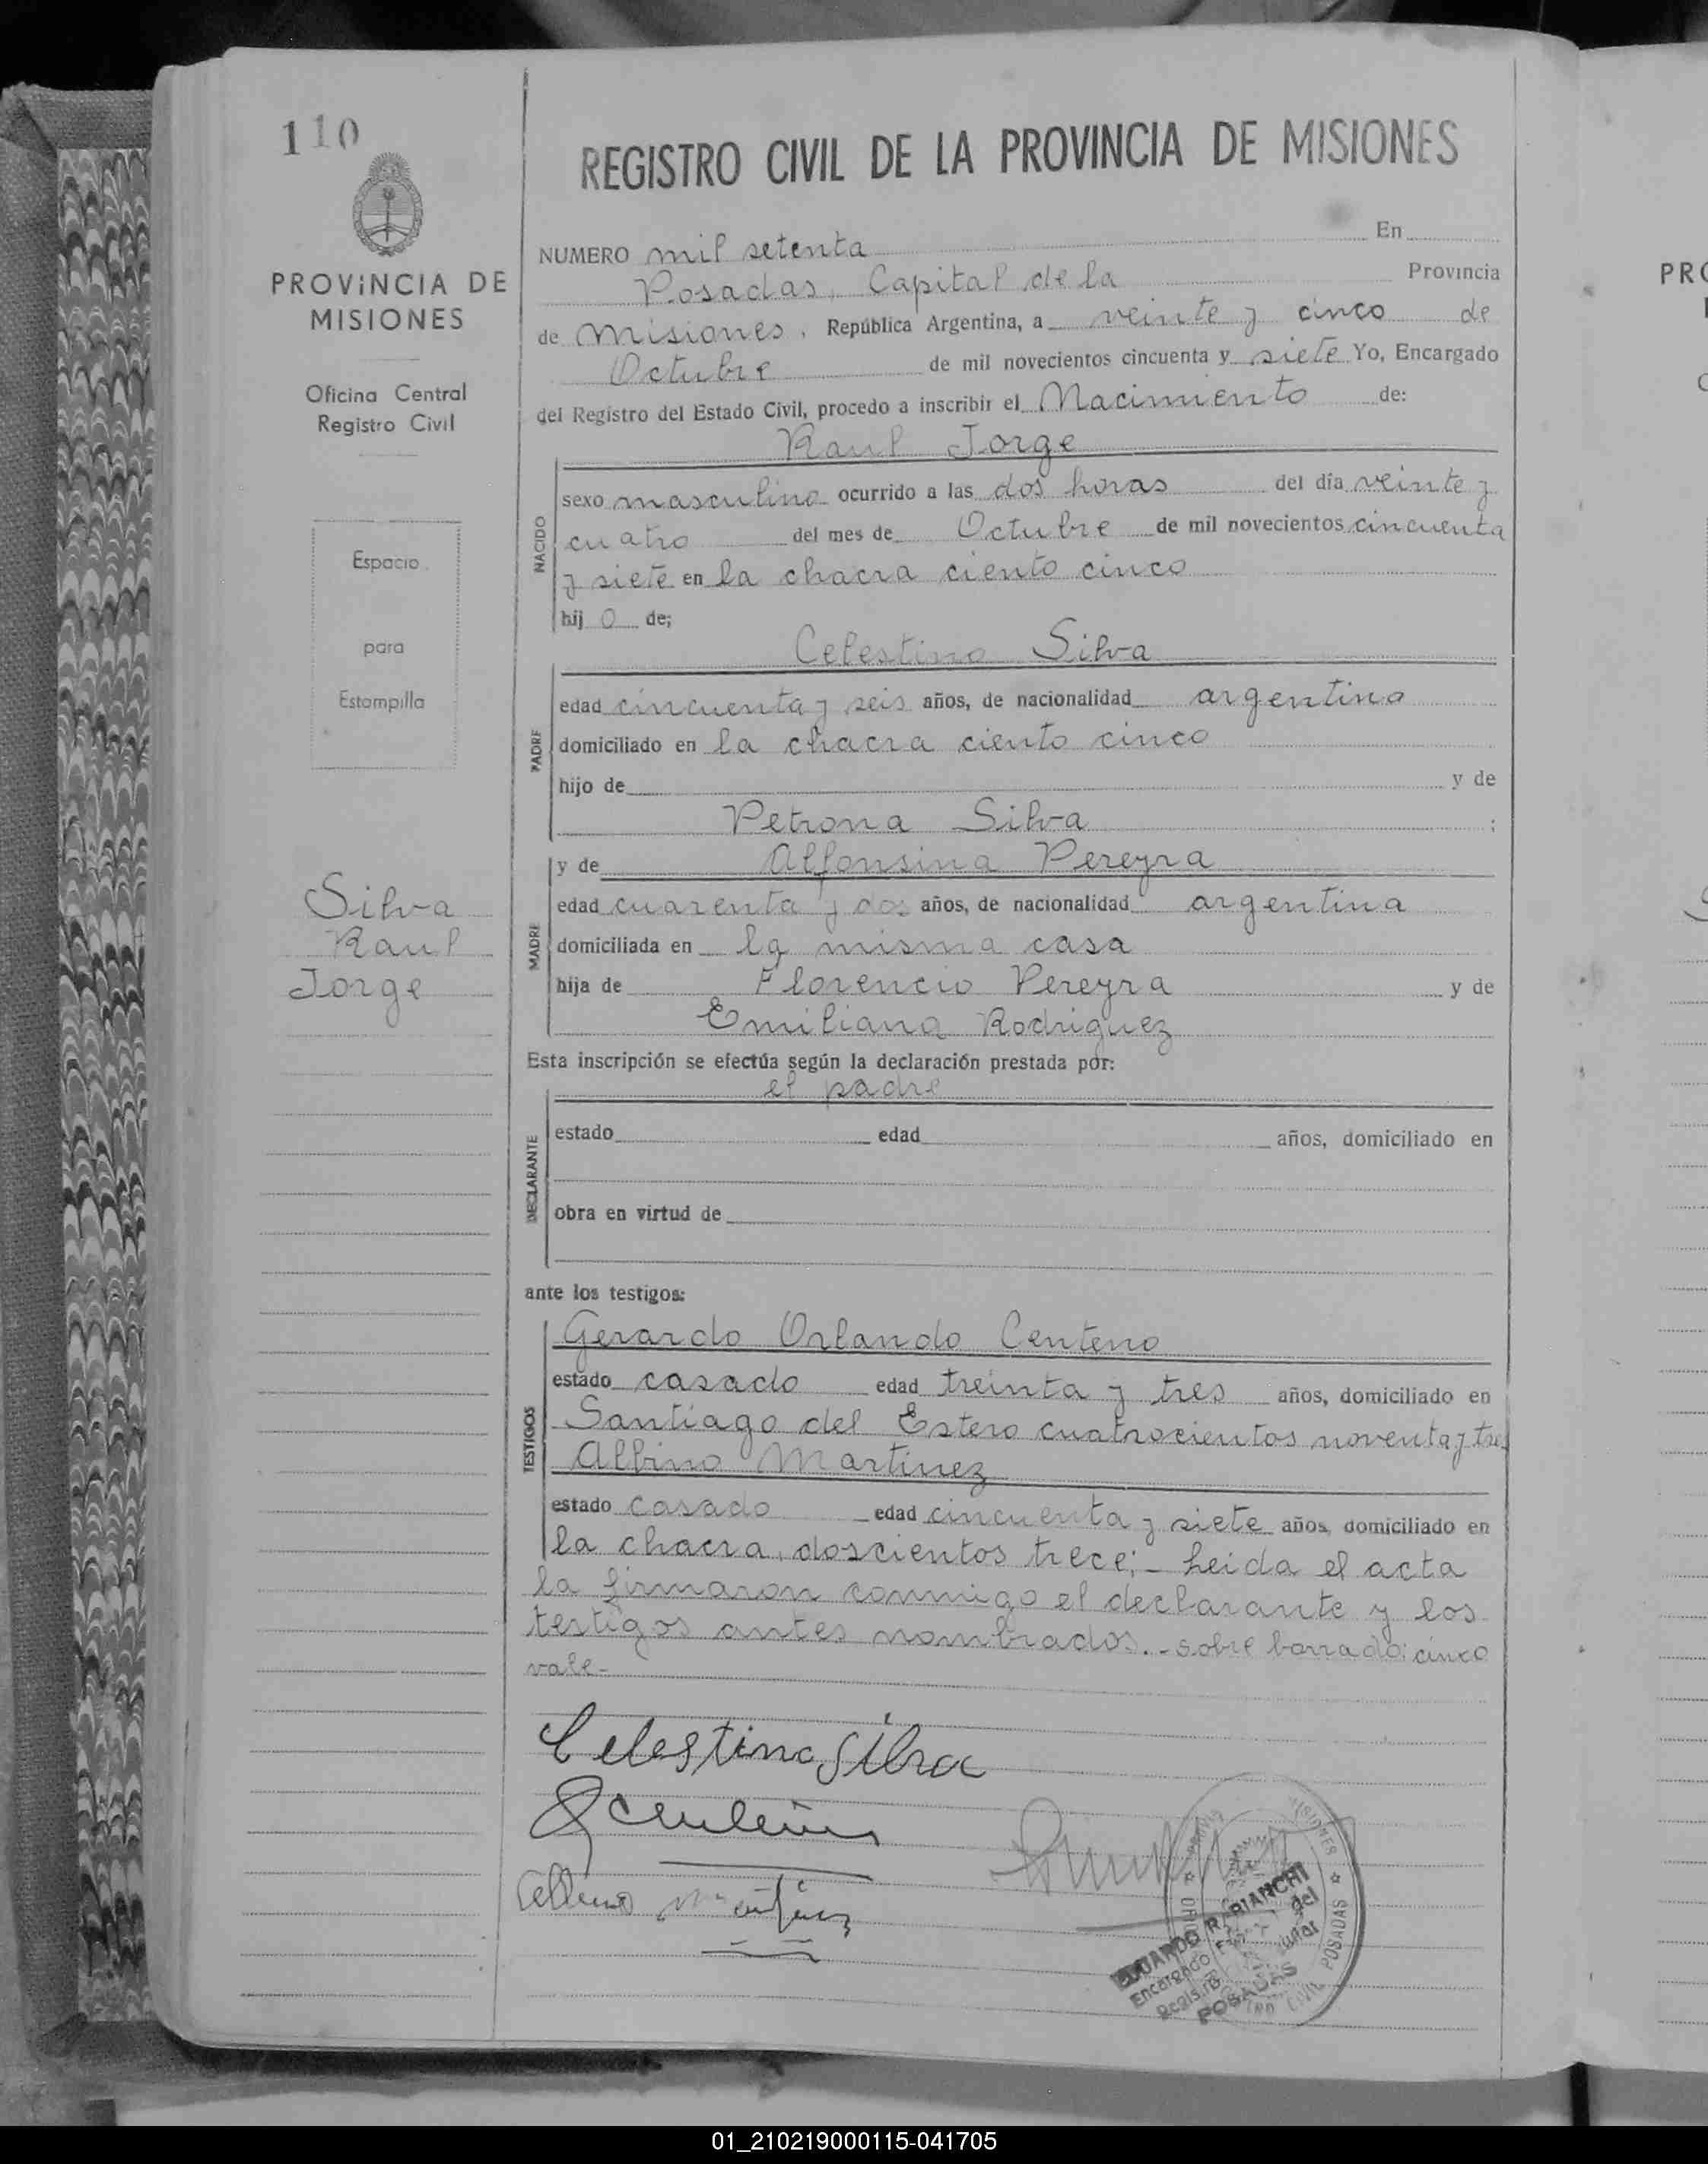 110
PROVINCIA DE
MISIONES
Oficina Central
Registro Civil
Espacio
para
Estampilla
Silva
Raul
Jorge
REGISTRO CIVIL DE LA PROVINCIA DE MISIONES
NUMERO mil setenta En
Posadas, Capital de la Provincia
de Misiones, República Argentina, a veinte y cinco de
Octubre de mil novecientos cincuenta y siete Yo, Encargado
del Registro del Estado Civil, procedo a inscribir el Nacimiento de:
Raul Jorge
NACIDO
sexo masculino ocurrido a las dos horas del día veinte y
cuatro del mes de Octubre de mil novecientos cincuenta
y siete en la chacra ciento cinco
hij o de;
Celestino Silva
PADRE
edad cincuenta y seis años, de nacionalidad argentino
domiciliado en la chacra ciento cinco
hijo de y de
Petrona Silva ;
y de Alfonsina Pereyra
MADRE
edad cuarenta y dos años, de nacionalidad argentina
domiciliada en la misma casa
hija de Florencio Pereyra y de
Emiliana Rodriguez
Esta inscripción se efectúa según la declaración prestada por:
el padre
DECLARANTE
estado edad años, domiciliado en
obra en virtud de
ante los testigos:
TESTIGOS
Gerardo Orlando Centeno
estado casado edad treinta y tres años, domiciliado en
Santiago del Estero cuatrocientos noventa y tres
Albino Martinez
estado casado edad cincuenta y siete años, domiciliado en
la chacra, doscientos trece;- Leida el acta
la firmaron conmigo el declarante y los
testigos antes nombrados.- Sobre borrado: cinco
vale-
Celestino Silva
Albino Martinez
EDUARDO R. BIANCHI
Encargado del
Registro
POSADAS
MISIONES
POSADAS
CIVIL
PRO
01_210219000115-041705